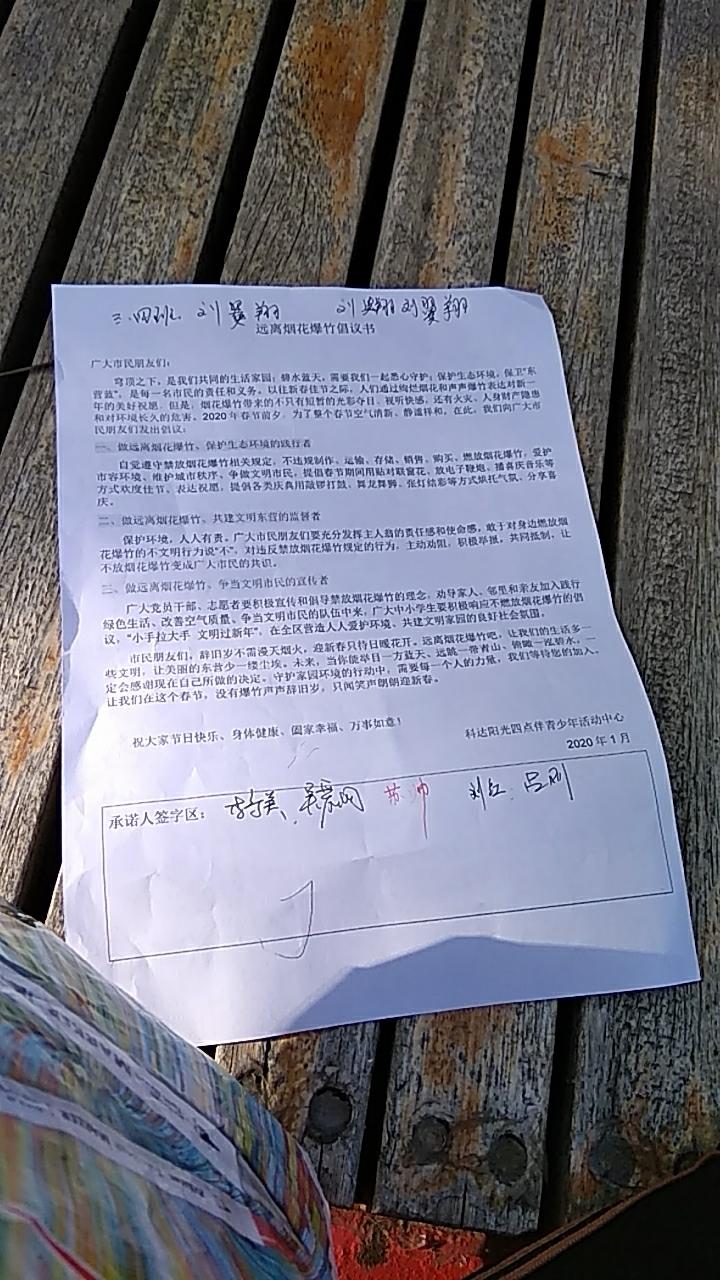 三.四班 刘翼翔 刘翼翔 刘翼翔
远离烟花爆竹倡议书
广大市民朋友们：
穹顶之下，是我们共同的生活家园；碧水蓝天，需要我们一起悉心守护；保护生态环境，保卫“东
营蓝”，是每一名市民的责任和义务。以往新春佳节之际，人们通过绚烂烟花和声声爆竹表达对新一
年的美好祝愿，但是，烟花爆竹带来的不只有短暂的光彩夺目、视听快感，还有火灾、人身财产隐患
和对环境长久的危害。2020年春节前夕，为了整个春节空气清新、静谧祥和。在此，我们向广大市
民朋友们发出倡议：
一、做远离烟花爆竹、保护生态环境的践行者
自觉遵守禁放烟花爆竹相关规定，不违规制作、运输、存储、销售、购买、燃放烟花爆竹，爱护
市容环境、维护城市秩序、争做文明市民，提倡春节期间用贴对联窗花、放电子鞭炮、播喜庆音乐等
方式欢度佳节、表达祝愿，提倡各类庆典用敲锣打鼓、舞龙舞狮、张灯结彩等方式烘托气氛、分享喜
庆。
二、做远离烟花爆竹、共建文明东营的监督者
保护环境，人人有责。广大市民朋友们要充分发挥主人翁的责任感和使命感，敢于对身边燃放烟
花爆竹的不文明行为说“不”，对违反禁放烟花爆竹规定的行为，主动劝阻，积极举报，共同抵制，让
不放烟花爆竹变成广大市民的共识。
三、做远离烟花爆竹、争当文明市民的宣传者
广大党员干部、志愿者要积极宣传和倡导禁放烟花爆竹的理念，劝导家人、邻里和亲友加入践行
绿色生活、改善空气质量、争当文明市民的队伍中来，广大中小学生要积极响应不燃放烟花爆竹的倡
议，“小手拉大手 文明过新年”，在全区营造人人爱护环境、共建文明家园的良好社会氛围，
市民朋友们，辞旧岁不需漫天烟火，迎新春只待日暖花开。远离烟花爆竹吧，让我们的生活多一
些文明，让美丽的东营少一缕尘埃。未来，当你能举目一方蓝天、远眺一带青山、俯瞰一泓碧水，一
定会感谢现在自己所做的决定。守护家园环境的行动中，需要每一个人的力量，我们等待您的加入。
让我们在这个春节，没有爆竹声声辞旧岁，只闻笑声朗朗迎新春。
祝大家节日快乐、身体健康、阖家幸福、万事如意！
科达阳光四点伴青少年活动中心
2020年1月
承诺人签字区： 苏帅 刘红 吕刚